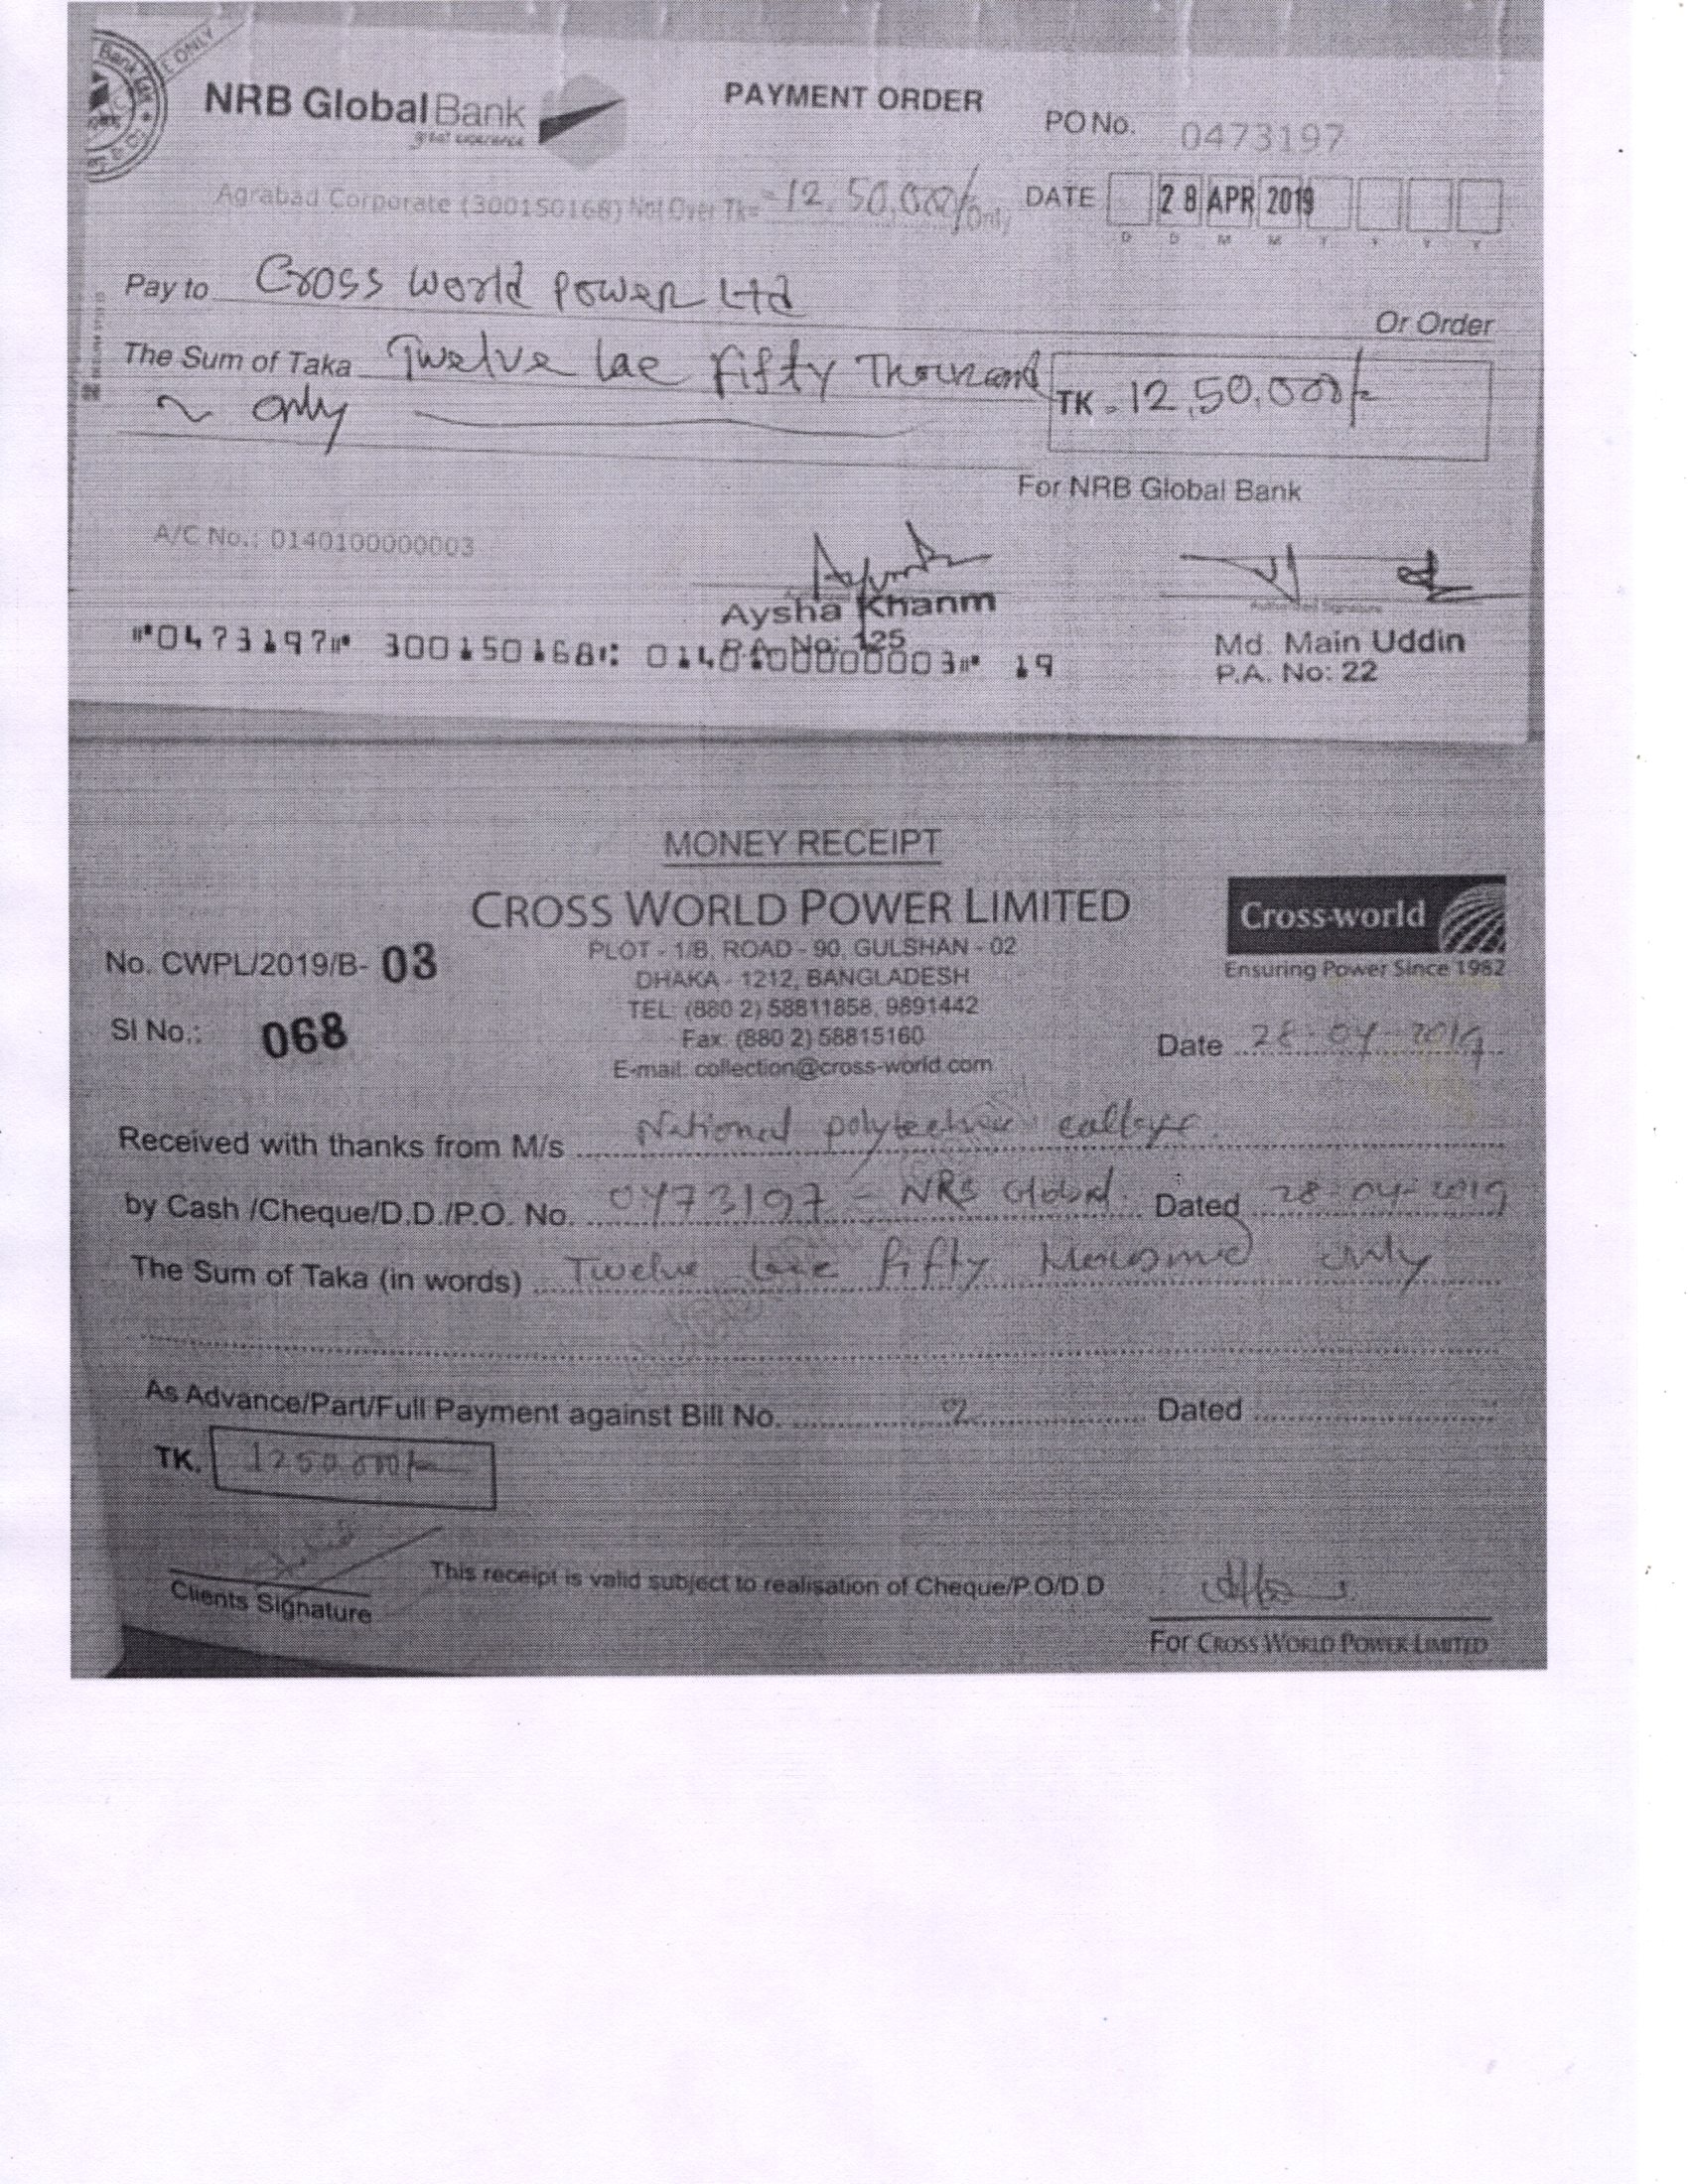 E ONLY
NRB Global Bank
PAYMENT ORDER
PO No. 0473197
Agrabad Corporate (300150168) Not Over Tk= 12,50,000/- Only
DATE 28 APR 2019
D D M M Y Y Y Y
Pay to Cross World Power Ltd
Or Order
The Sum of Taka Twelve lac fifty Thousand
~ only
TK = 12,50,000/-
For NRB Global Bank
A/C No.: 0140100000003
Authorized Signature
Aysha Khanm
P.A. No: 125
Md. Main Uddin
P.A. No: 22
⑈0473197⑈ 300150168⑆ 0140100000003⑈ 19
MONEY RECEIPT
CROSS WORLD POWER LIMITED
Cross-world
Ensuring Power Since 1982
PLOT - 1/B, ROAD - 90, GULSHAN - 02
DHAKA - 1212, BANGLADESH
TEL: (880 2) 58811858, 9891442
Fax: (880 2) 58815160
E-mail: collection@cross-world.com
No. CWPL/2019/B- 03
Sl No.: 068
Date 28-04-2019
Received with thanks from M/s National polytechnic college.
by Cash /Cheque/D.D./P.O. No. 0473197 - NRB Global. Dated 28-04-2019
The Sum of Taka (in words) Twelve lac fifty thousand only
As Advance/Part/Full Payment against Bill No. Dated
TK. 1250,000/-
Clients Signature
This receipt is valid subject to realisation of Cheque/P.O/D.D
For CROSS WORLD POWER LIMITED